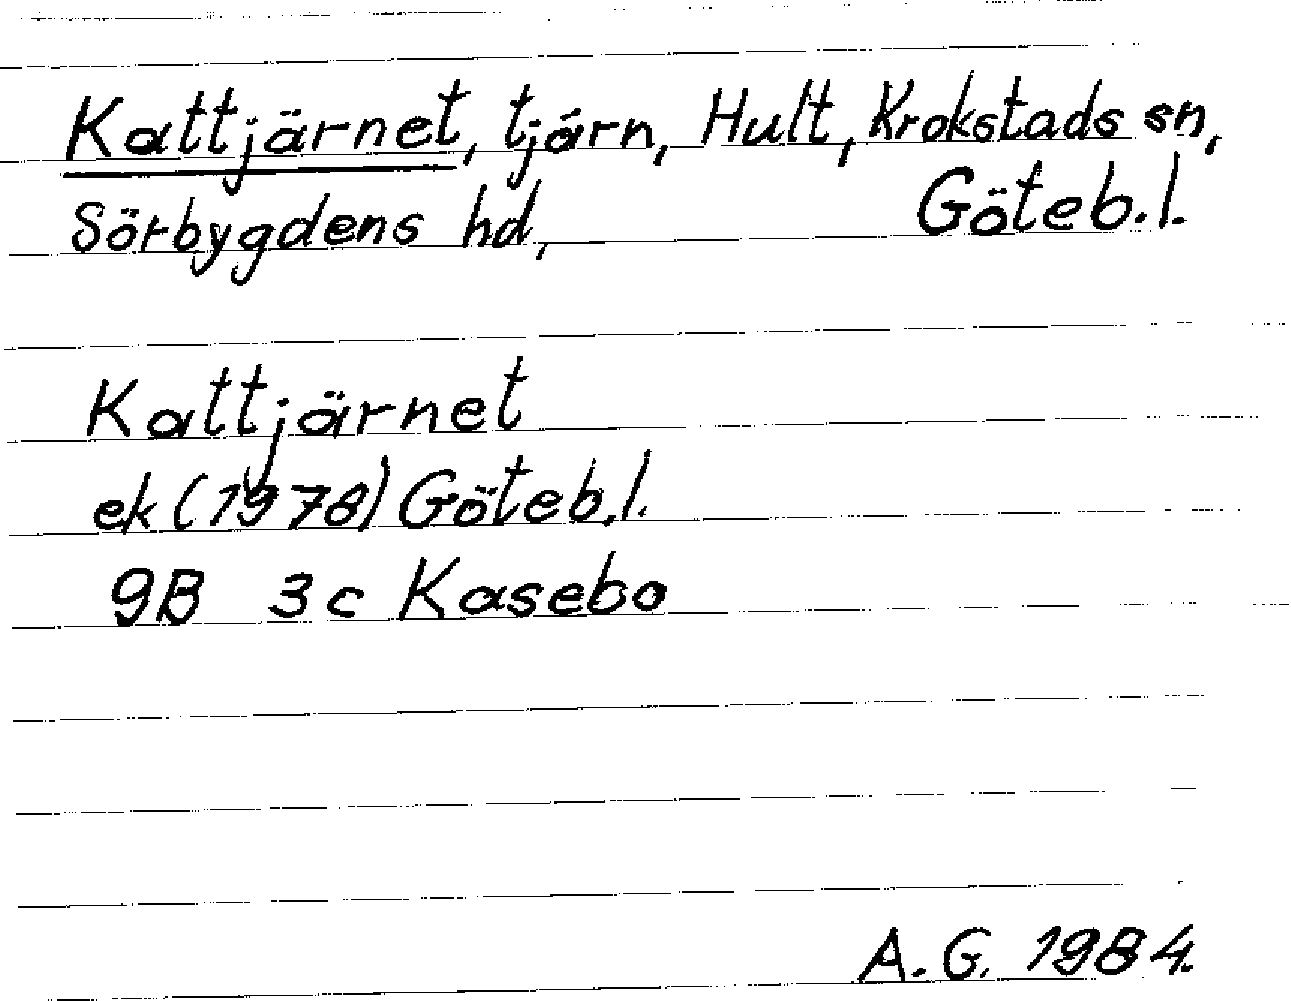 Kattjärnet, tjärn, Hult, Krokstads sn,
Sörbygdens hd, Göteb.l.
Kattjärnet
ek (1978) Göteb.l.
9B 3c Kasebo
A.G. 1984.